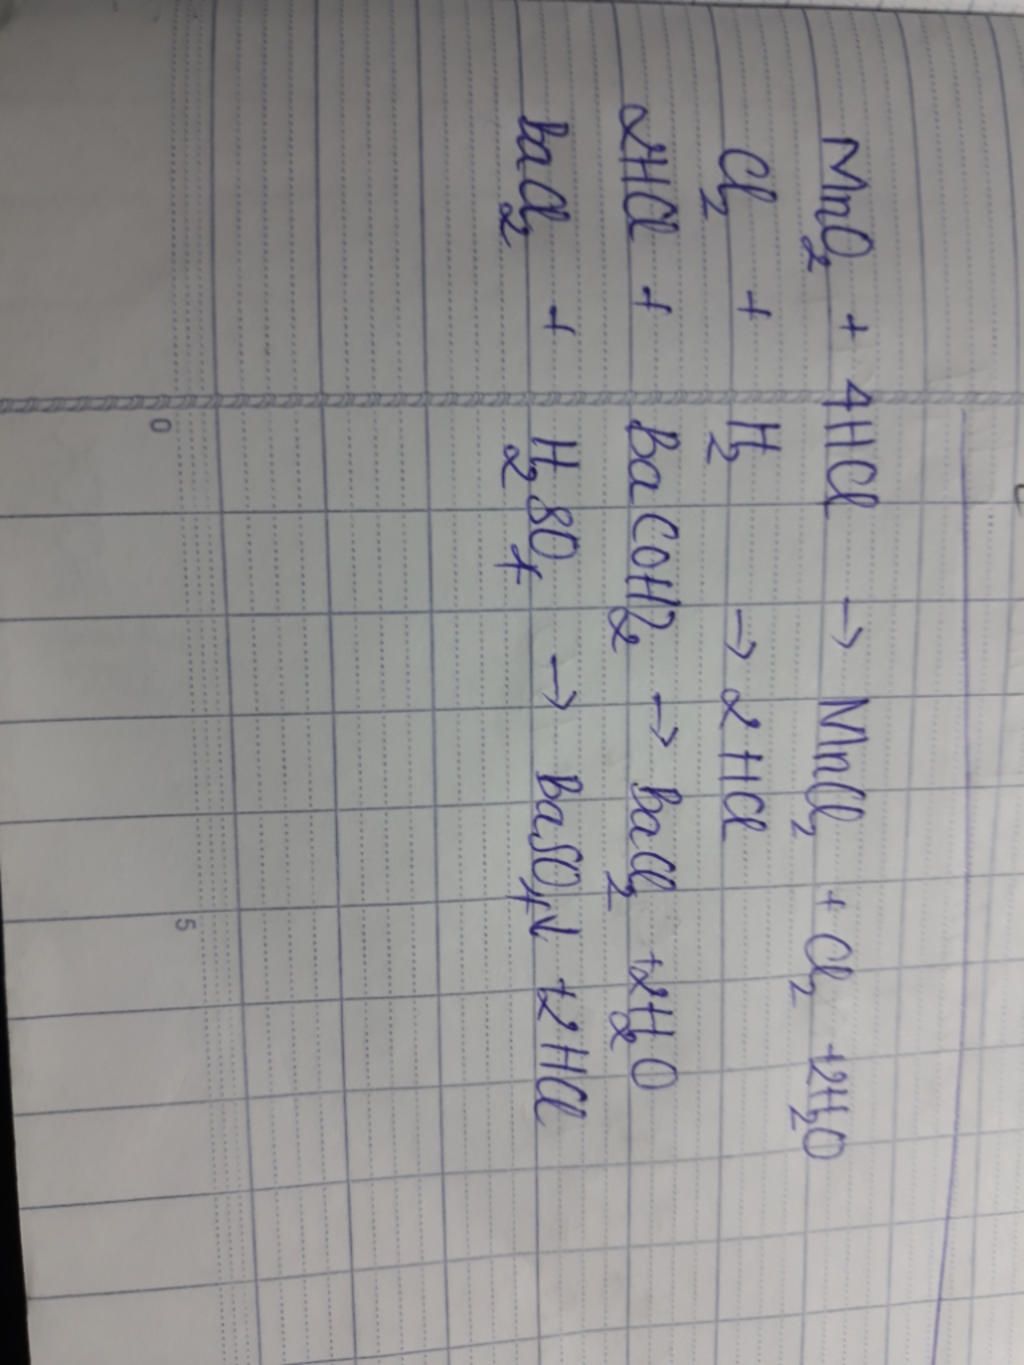 MnO₂ + 4HCl → MnCl₂ + Cl₂ + 2H₂O
Cl₂ + H₂ → 2HCl
2HCl + Ba(OH)₂ → BaCl₂ + 2H₂O
BaCl₂ + H₂SO₄ → BaSO₄↓ + 2HCl
0
5